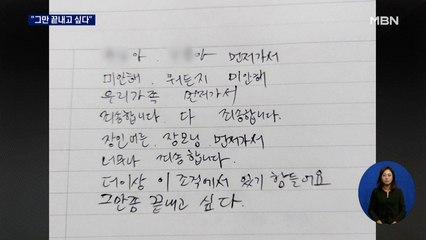 "그만 끝내고 싶다"
MBN
아. 야 먼저가서
미안해. 뭐든지 미안해
우리가족 먼저가서
죄송합니다 다 죄송합니다.
장인어른, 장모님 먼저가서
너무나 죄송합니다.
더이상 이 조직에서 있기 힘들어요
그만좀 끝내고 싶다.